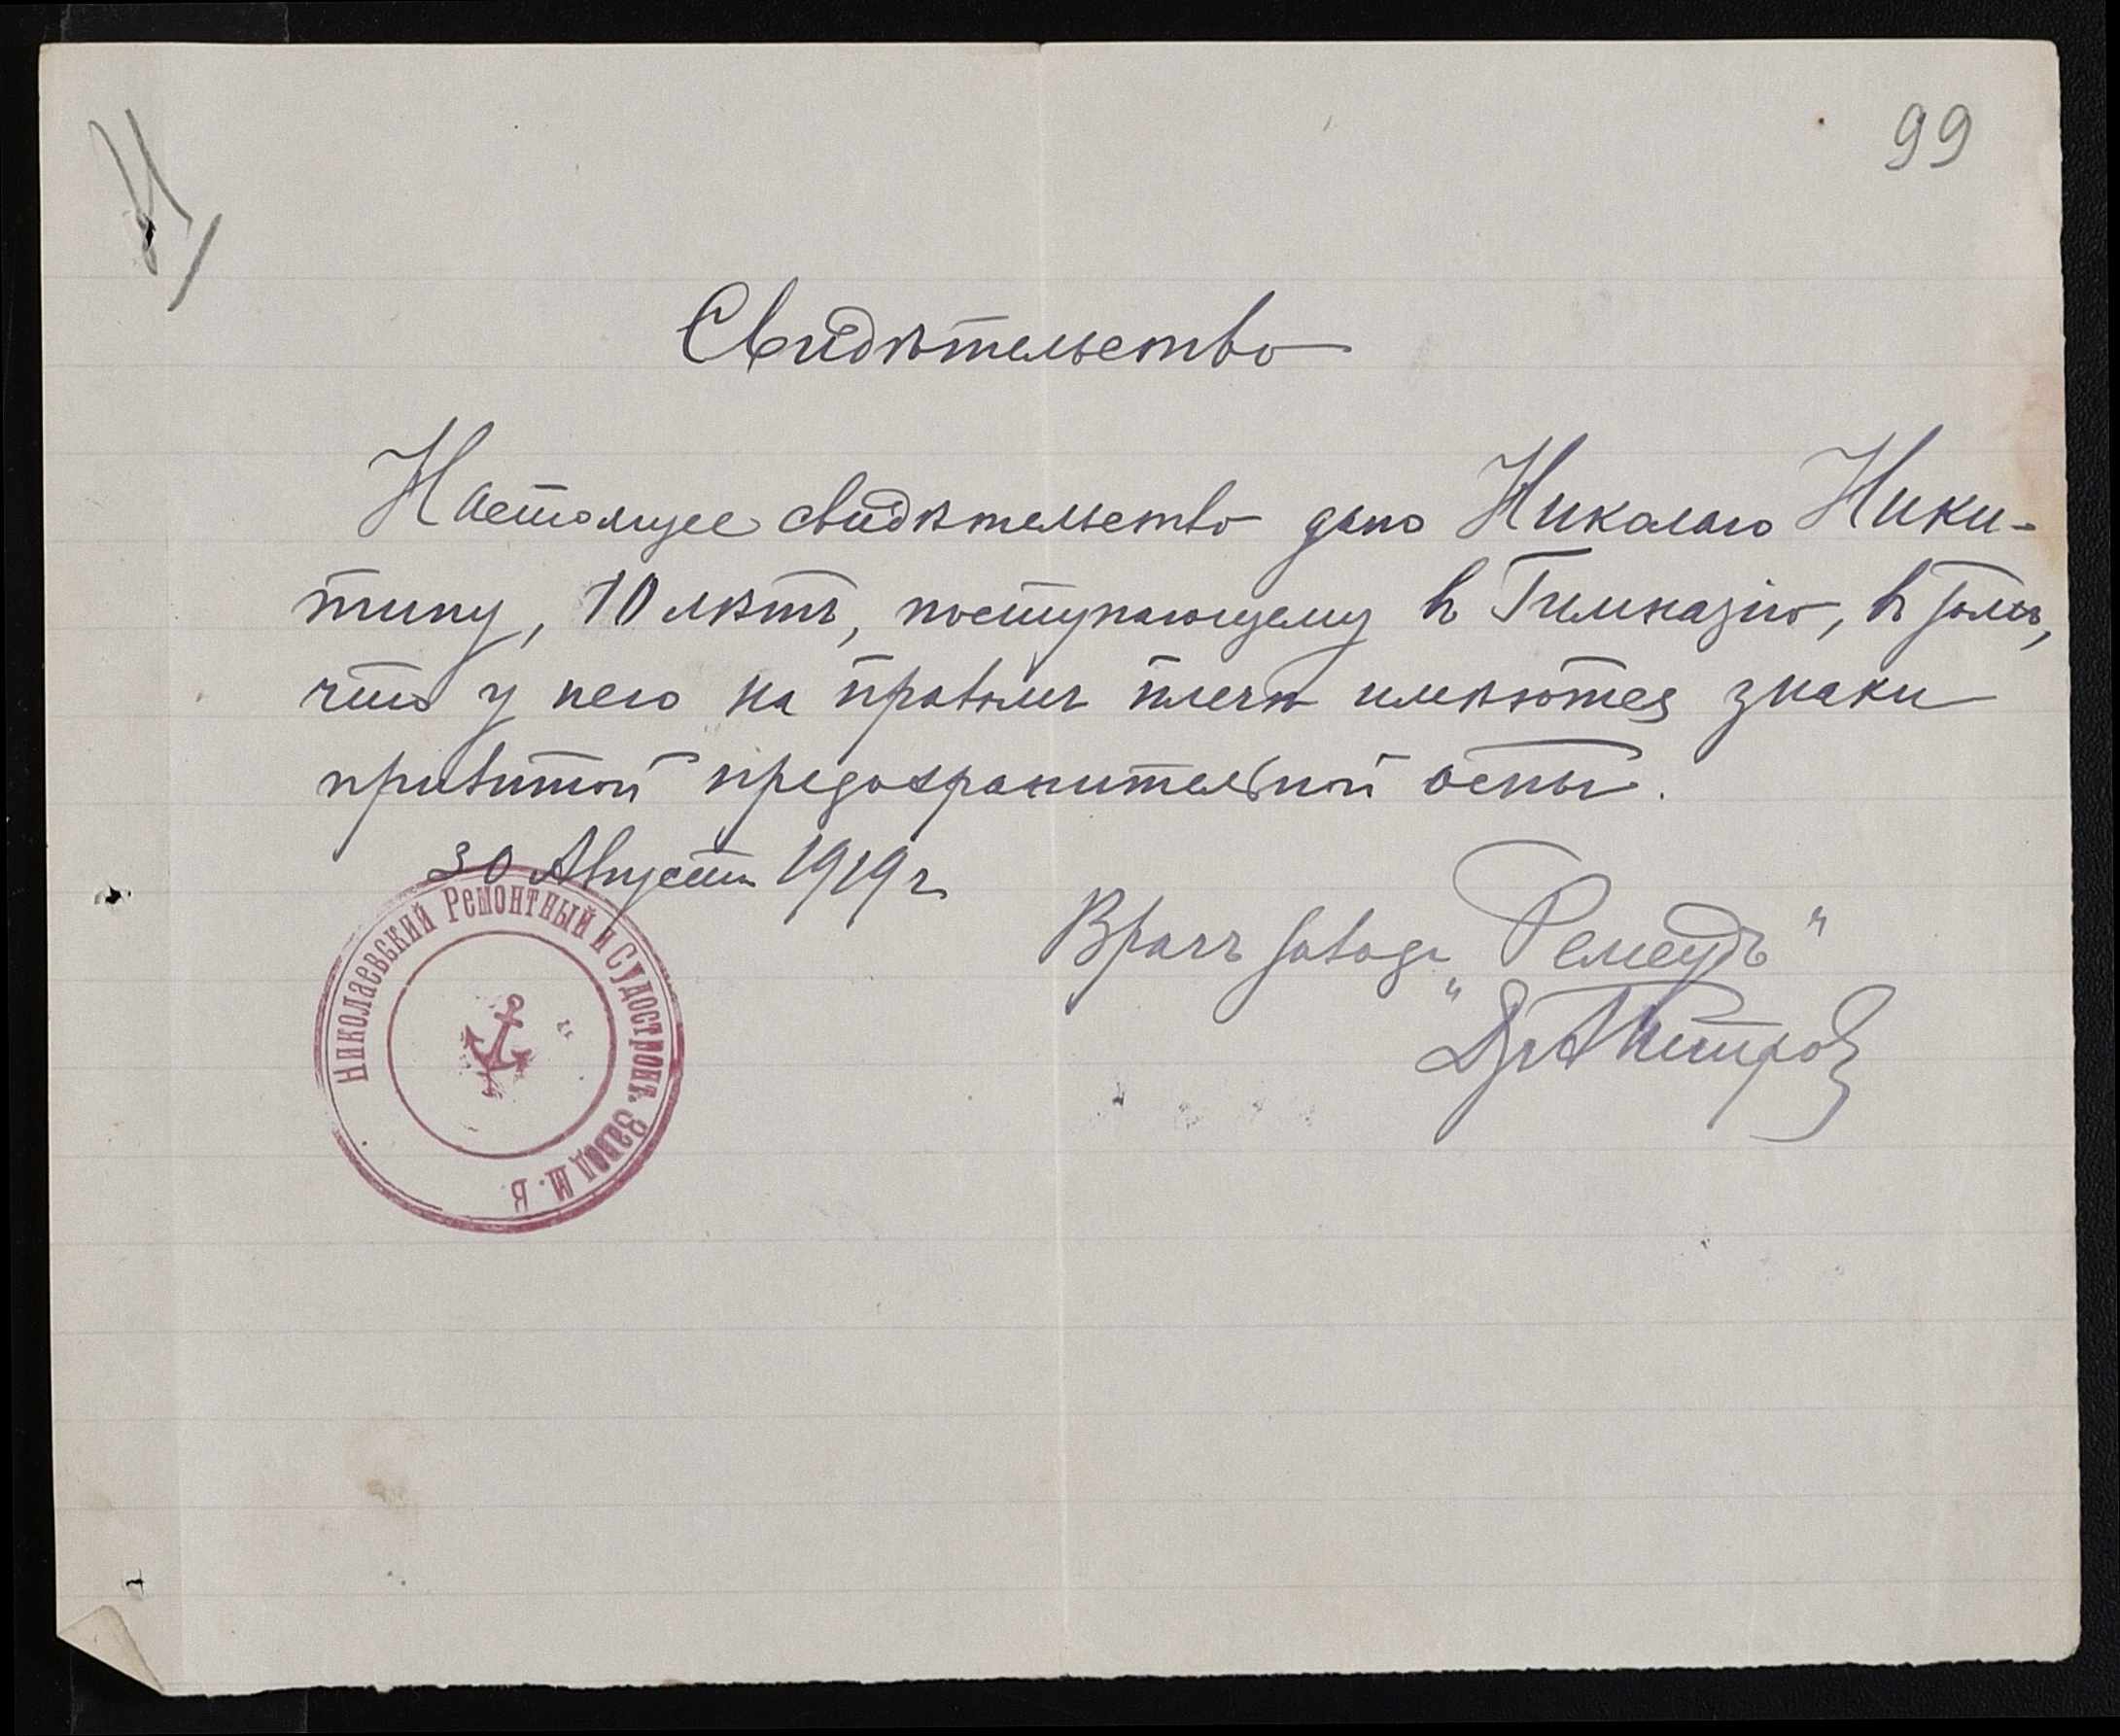 99
Свидѣтельство
Настоящее свидѣтельство дано Николаю Ники-
тину, 10 лѣтъ, поступающему въ Гимназію, въ томъ,
что у него на правомъ плечѣ имѣются знаки
привитой предохранительной оспы.
30 Августа 1919 г
Врачъ завода „Ремсудъ“
Николаевский Ремонтный и Судостроит. Завод М. В.